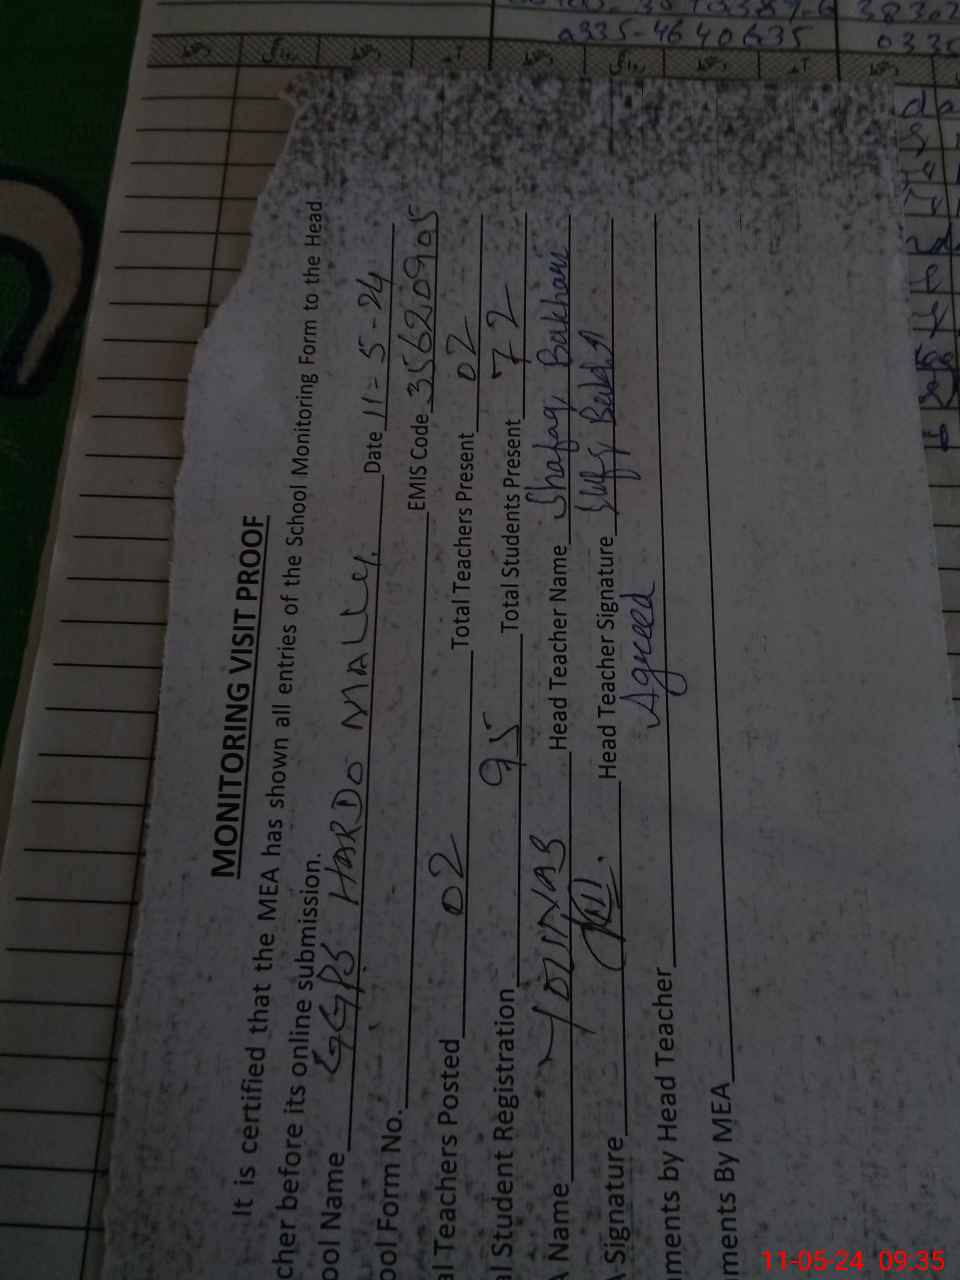 0335-4640635
MONITORING VISIT PROOF
It is certified that the MEA has shown all entries of the School Monitoring Form to the Head
cher before its online submission.
ool Name GGPS HARDO MALLEY. Date 11-5-24
ool Form No. EMIS Code 35620905
al Teachers Posted 02 Total Teachers Present 02
al Student Registration 95 Total Students Present 72
A Name YOUNAS Head Teacher Name Shafaq, Bakhari
A Signature Head Teacher Signature
ments by Head Teacher Agreed
ments By MEA
11-05-24 09:35